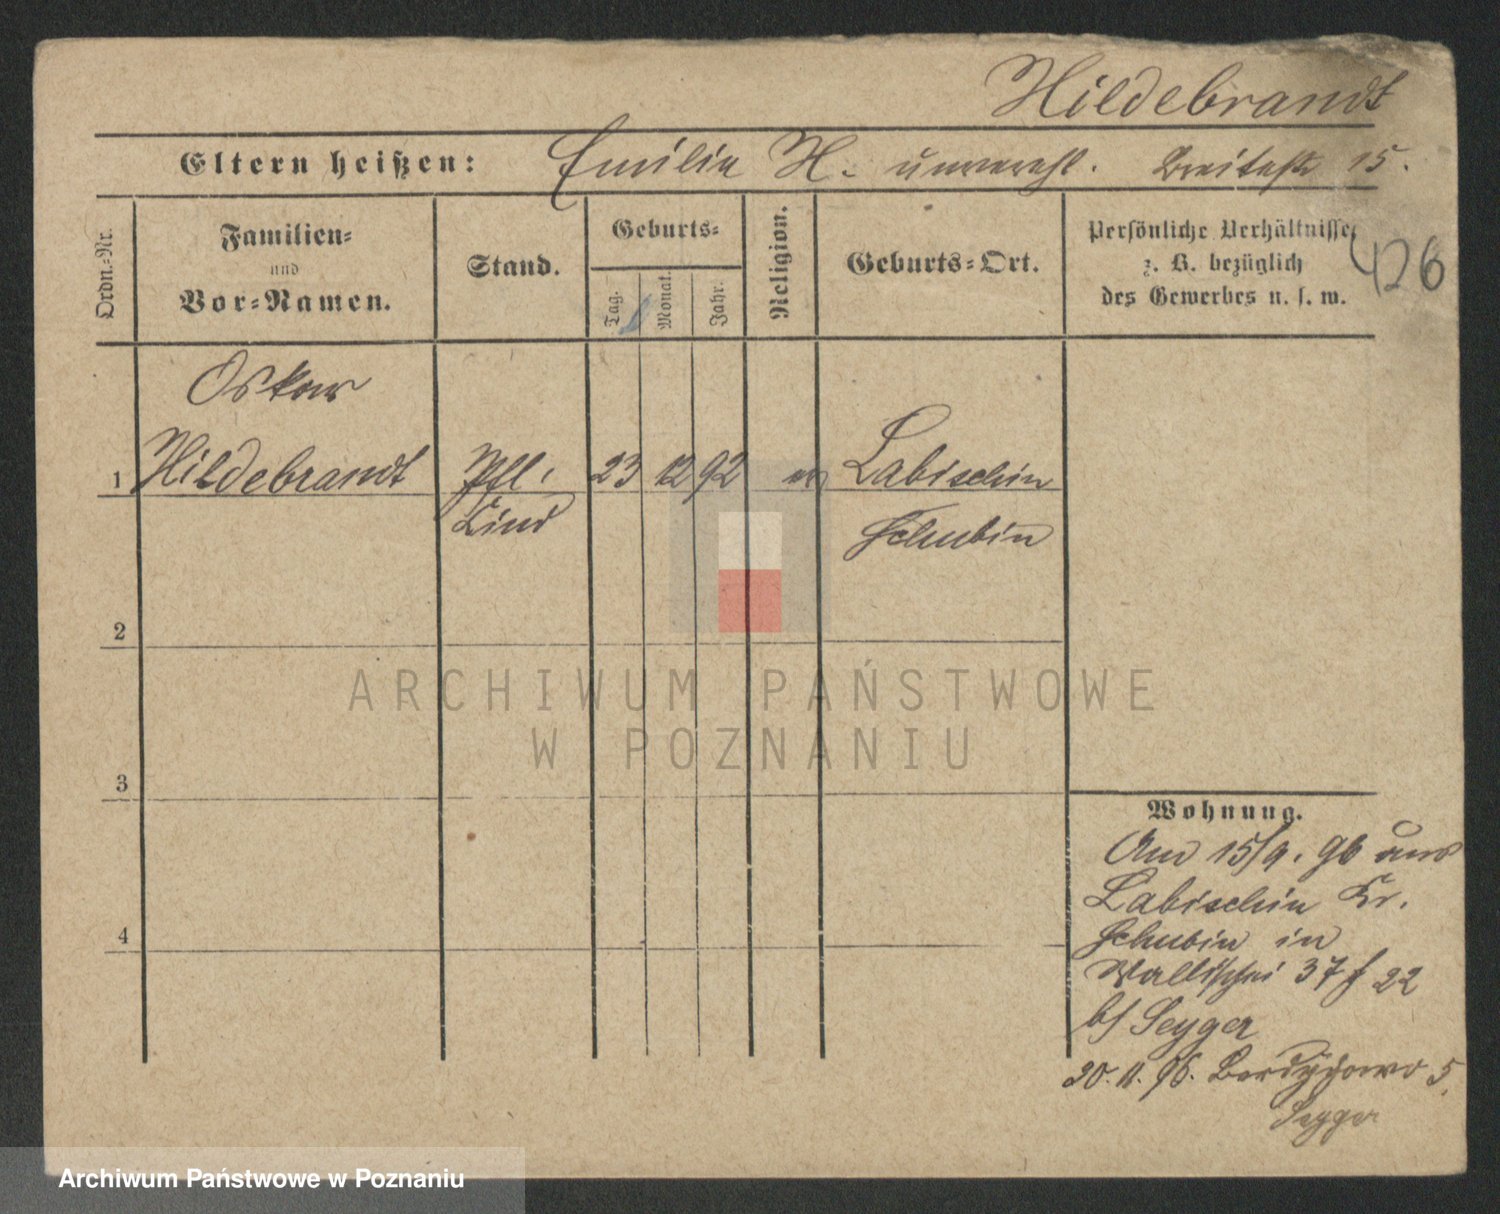 Hildebrandt
Eltern heißen: Emilie H. unverehl. Breitestr 15.
Ordn.-Nr.
Familien-
und
Vor-Namen.
Stand.
Geburts-
Tag.
Monat.
Jahr.
Religion.
Geburts-Ort.
Persönliche Verhältnisse
z. B. bezüglich
des Gewerbes u. s. w.
426
Oskar
1 Hildebrandt Pfl. 23 12 92 ev Labischin
Kind Schubin
2
ARCHIWUM PAŃSTWOWE
W POZNANIU
3
Wohnung.
Am 15/9. 96 aus
Labischin Kr.
Schubin in
4
Wallischei 37 f 22
b/ Seyger
20. 11. 96. Berdychowo 5
Seyger
Archiwum Państwowe w Poznaniu